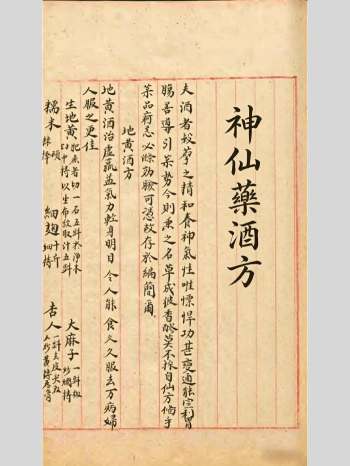 神仙藥酒方
夫酒者蚁之精和養神氣性惟慓悍功甚變通能宣和胃
腸善導引藥勢今則熏之名草成彼香醪莫不採自仙方備乎
藥品痾恙必除功驗可憑故存於編簡爾
地黄酒方
地黄酒治虛羸益氣力輕身明目令人能食久久服去万病婦
人服之更佳
生地黄肥者切一石五斗淨水臼中搗以生布絞取汁五斗 大麻子一斗微炒爛搗
糯米 細麹十斤細搗 杏人一斗去皮尖